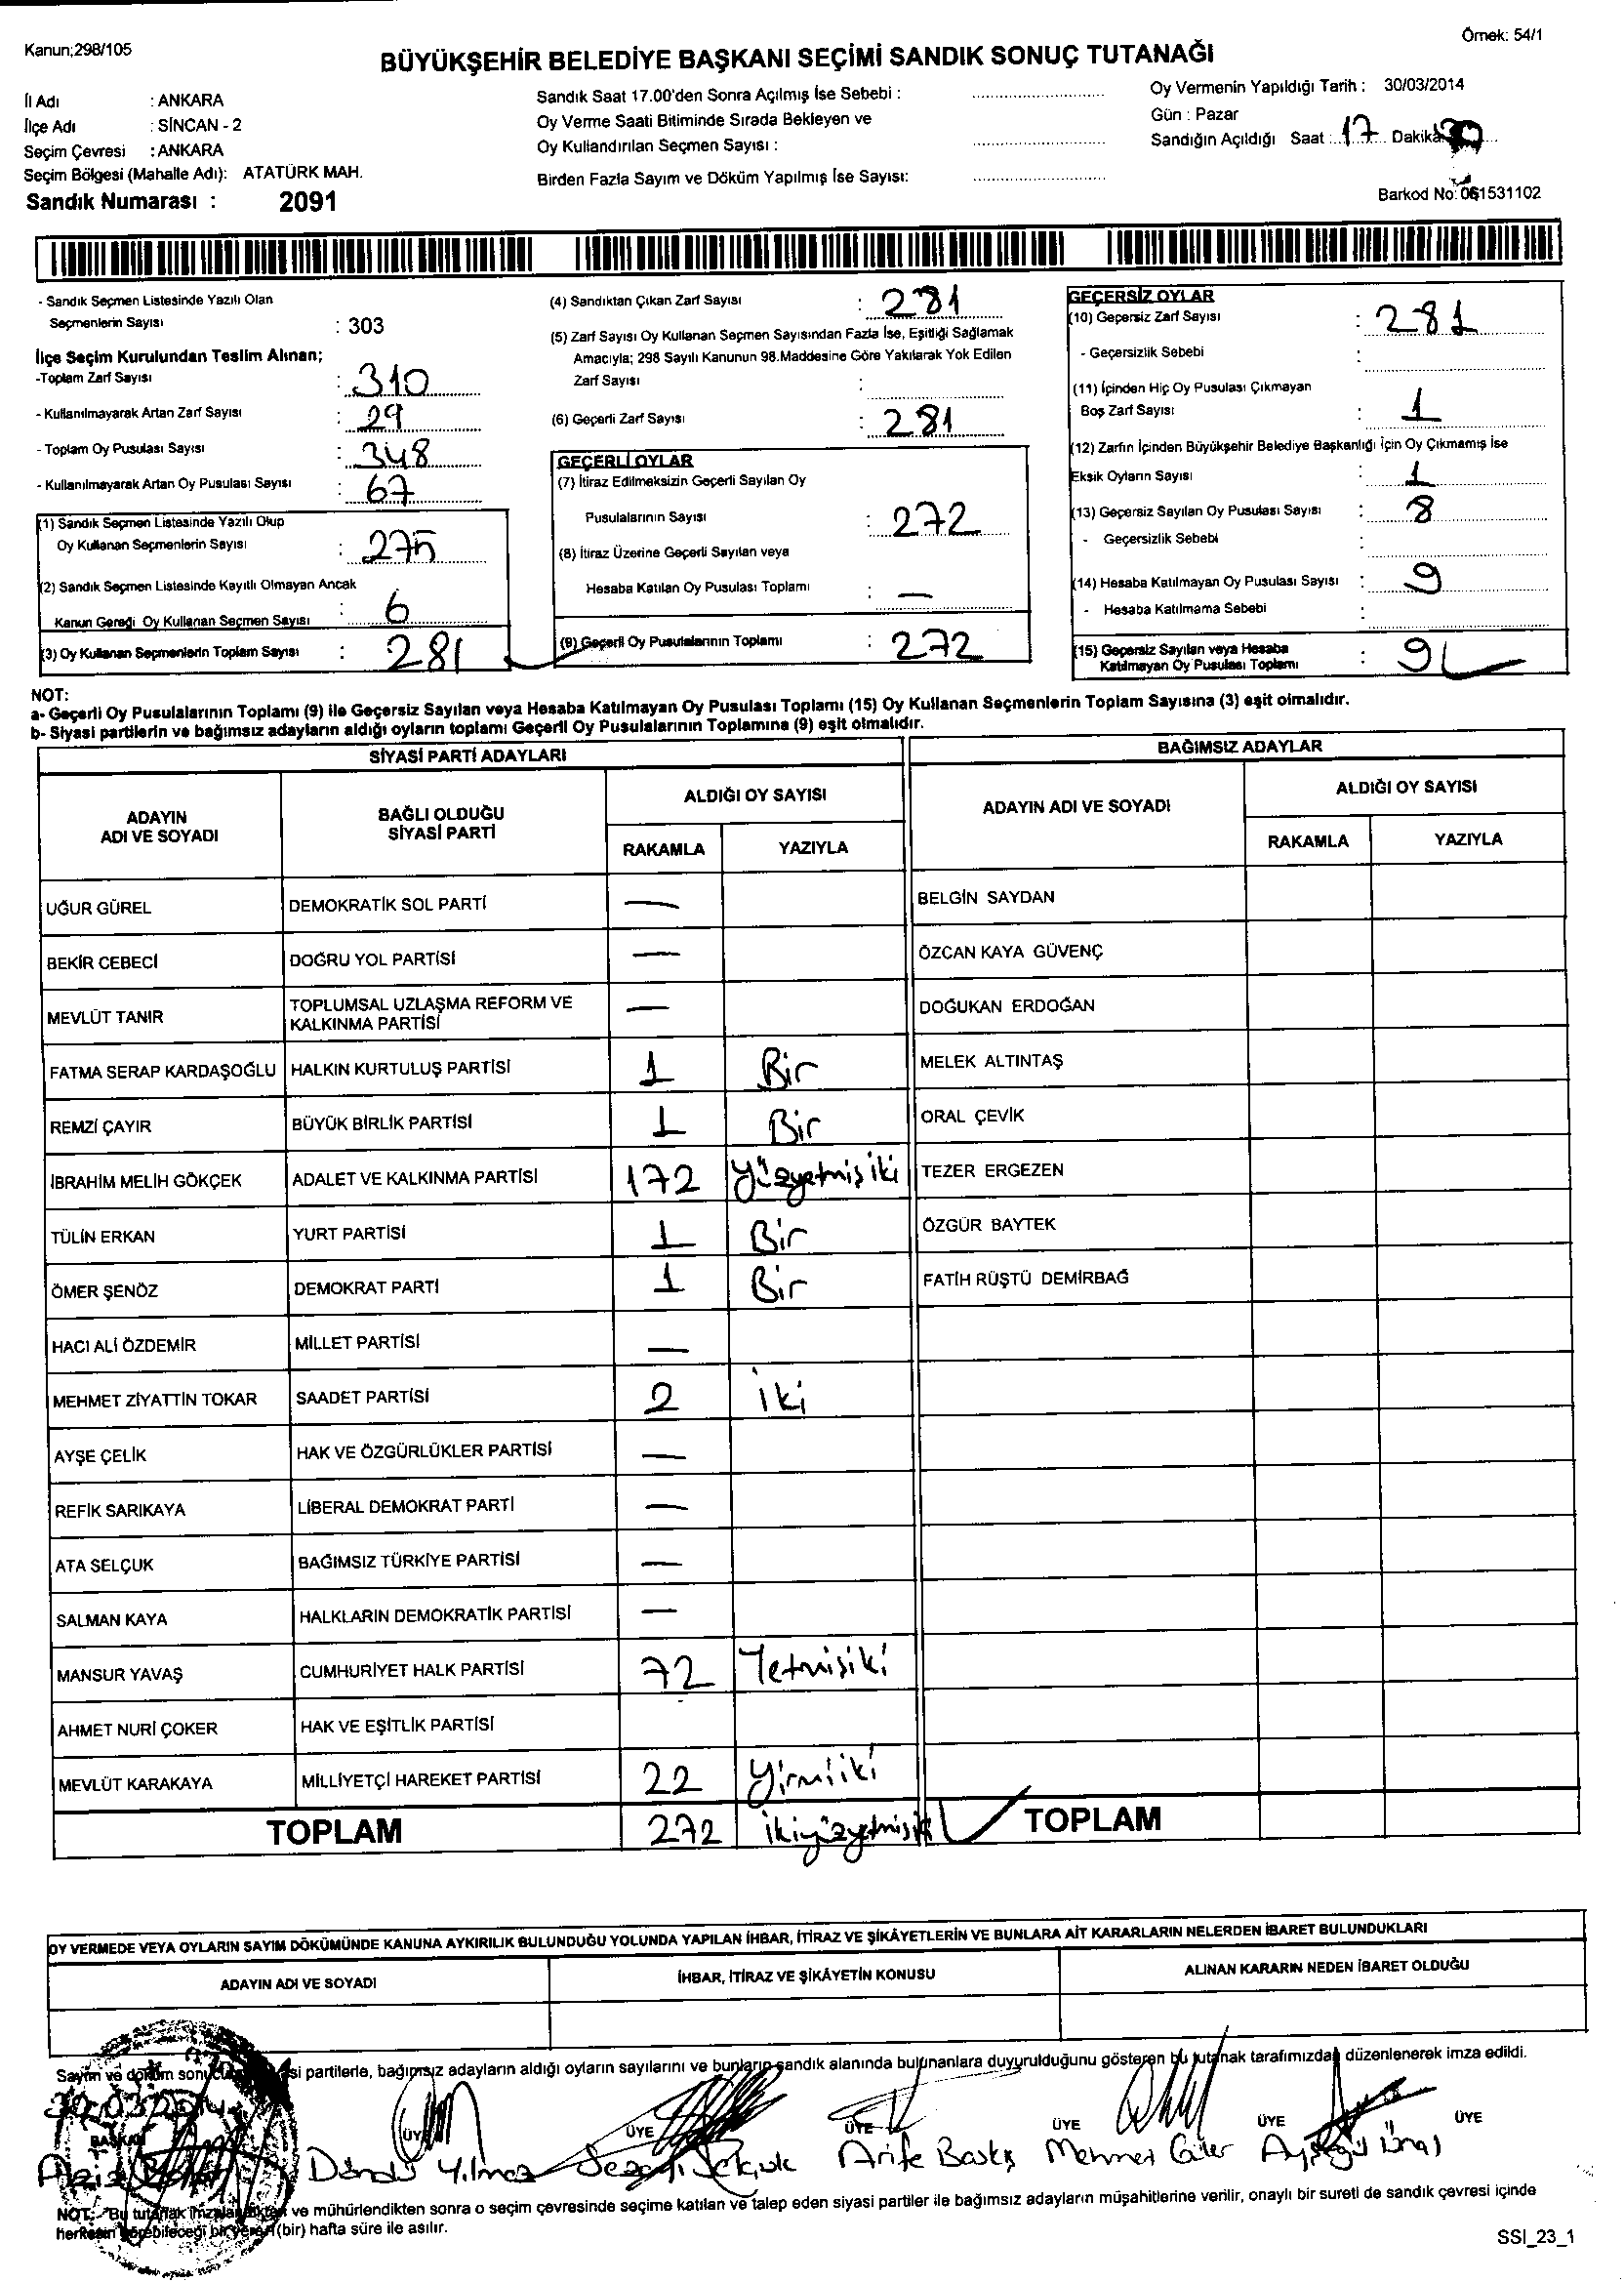 Kanun;298/105
Örnek: 54/1
BÜYÜKŞEHİR BELEDİYE BAŞKANI SEÇİMİ SANDIK SONUÇ TUTANAĞI
İl Adı : ANKARA
İlçe Adı : SİNCAN - 2
Seçim Çevresi : ANKARA
Seçim Bölgesi (Mahalle Adı): ATATÜRK MAH.
Sandık Numarası : 2091
Sandık Saat 17.00'den Sonra Açılmış İse Sebebi :
Oy Verme Saati Bitiminde Sırada Bekleyen ve
Oy Kullandırılan Seçmen Sayısı :
Birden Fazla Sayım ve Döküm Yapılmış İse Sayısı:
Oy Vermenin Yapıldığı Tarih : 30/03/2014
Gün : Pazar
Sandığın Açıldığı Saat : 17 Dakika
Barkod No: 061531102
- Sandık Seçmen Listesinde Yazılı Olan
Seçmenlerin Sayısı : 303
İlçe Seçim Kurulundan Teslim Alınan;
-Toplam Zarf Sayısı : 310
- Kullanılmayarak Artan Zarf Sayısı : 29
- Toplam Oy Pusulası Sayısı : 348
- Kullanılmayarak Artan Oy Pusulası Sayısı : 67
(1) Sandık Seçmen Listesinde Yazılı Olup
Oy Kullanan Seçmenlerin Sayısı : 275
(2) Sandık Seçmen Listesinde Kayıtlı Olmayan Ancak
Kanun Gereği Oy Kullanan Seçmen Sayısı : 6
(3) Oy Kullanan Seçmenlerin Toplam Sayısı : 281
(4) Sandıktan Çıkan Zarf Sayısı : 281
(5) Zarf Sayısı Oy Kullanan Seçmen Sayısından Fazla İse, Eşitliği Sağlamak
Amacıyla; 298 Sayılı Kanunun 98.Maddesine Göre Yakılarak Yok Edilen
Zarf Sayısı :
(6) Geçerli Zarf Sayısı : 281
GEÇERLİ OYLAR
(7) İtiraz Edilmeksizin Geçerli Sayılan Oy
Pusulalarının Sayısı : 272
(8) İtiraz Üzerine Geçerli Sayılan veya
Hesaba Katılan Oy Pusulası Toplamı : —
(9) Geçerli Oy Pusulalarının Toplamı : 272
GEÇERSİZ OYLAR
(10) Geçersiz Zarf Sayısı : 281
- Geçersizlik Sebebi :
(11) İçinden Hiç Oy Pusulası Çıkmayan
Boş Zarf Sayısı : 1
(12) Zarfın İçinden Büyükşehir Belediye Başkanlığı İçin Oy Çıkmamış İse
Eksik Oyların Sayısı : 1
(13) Geçersiz Sayılan Oy Pusulası Sayısı : 8
- Geçersizlik Sebebi :
(14) Hesaba Katılmayan Oy Pusulası Sayısı : 9
- Hesaba Katılmama Sebebi :
(15) Geçersiz Sayılan veya Hesaba
Katılmayan Oy Pusulası Toplamı : 9
NOT:
a- Geçerli Oy Pusulalarının Toplamı (9) ile Geçersiz Sayılan veya Hesaba Katılmayan Oy Pusulası Toplamı (15) Oy Kullanan Seçmenlerin Toplam Sayısına (3) eşit olmalıdır.
b- Siyasi partilerin ve bağımsız adayların aldığı oyların toplamı Geçerli Oy Pusulalarının Toplamına (9) eşit olmalıdır.
SİYASİ PARTİ ADAYLARI
ADAYIN ADI VE SOYADI
BAĞLI OLDUĞU SİYASİ PARTİ
ALDIĞI OY SAYISI
RAKAMLA YAZIYLA
UĞUR GÜREL DEMOKRATİK SOL PARTİ —
BEKİR CEBECİ DOĞRU YOL PARTİSİ —
MEVLÜT TANIR TOPLUMSAL UZLAŞMA REFORM VE KALKINMA PARTİSİ —
FATMA SERAP KARDAŞOĞLU HALKIN KURTULUŞ PARTİSİ 1 Bir
REMZİ ÇAYIR BÜYÜK BİRLİK PARTİSİ 1 Bir
İBRAHİM MELİH GÖKÇEK ADALET VE KALKINMA PARTİSİ 172 Yüzyetmiş iki
TÜLİN ERKAN YURT PARTİSİ 1 Bir
ÖMER ŞENÖZ DEMOKRAT PARTİ 1 Bir
HACI ALİ ÖZDEMİR MİLLET PARTİSİ —
MEHMET ZİYATTİN TOKAR SAADET PARTİSİ 2 iki
AYŞE ÇELİK HAK VE ÖZGÜRLÜKLER PARTİSİ —
REFİK SARIKAYA LİBERAL DEMOKRAT PARTİ —
ATA SELÇUK BAĞIMSIZ TÜRKİYE PARTİSİ —
SALMAN KAYA HALKLARIN DEMOKRATİK PARTİSİ —
MANSUR YAVAŞ CUMHURİYET HALK PARTİSİ 72 Yetmişiki
AHMET NURİ ÇOKER HAK VE EŞİTLİK PARTİSİ
MEVLÜT KARAKAYA MİLLİYETÇİ HAREKET PARTİSİ 22 Yirmiiki
TOPLAM 272
BAĞIMSIZ ADAYLAR
ADAYIN ADI VE SOYADI
ALDIĞI OY SAYISI
RAKAMLA YAZIYLA
BELGİN SAYDAN
ÖZCAN KAYA GÜVENÇ
DOĞUKAN ERDOĞAN
MELEK ALTINTAŞ
ORAL ÇEVİK
TEZER ERGEZEN
ÖZGÜR BAYTEK
FATİH RÜŞTÜ DEMİRBAĞ
TOPLAM
OY VERMEDE VEYA OYLARIN SAYIM DÖKÜMÜNDE KANUNA AYKIRILIK BULUNDUĞU YOLUNDA YAPILAN İHBAR, İTİRAZ VE ŞİKÂYETLERİN VE BUNLARA AİT KARARLARIN NELERDEN İBARET BULUNDUKLARI
ADAYIN ADI VE SOYADI
İHBAR, İTİRAZ VE ŞİKÂYETİN KONUSU
ALINAN KARARIN NEDEN İBARET OLDUĞU
Sayım ve döküm partilerle, bağımsız adayların aldığı oyların sayılarını ve bunların sandık alanında bulunanlara duyurulduğunu gösteren bu tutanak tarafımızdan düzenlenerek imza edildi.
30.03.2014
BAŞKAN ÜYE ÜYE ÜYE ÜYE ÜYE ÜYE
Yılmaz Selçuk Arife Mehmet Güler Ayşegül Ünal
NOT:- Bu tutanak ve mühürlendikten sonra o seçim çevresinde seçime katılan ve talep eden siyasi partiler ile bağımsız adayların müşahitlerine verilir, onaylı bir sureti de sandık çevresi içinde
herkesin görebileceği bir yere (bir) hafta süre ile asılır.
SSI_23_1